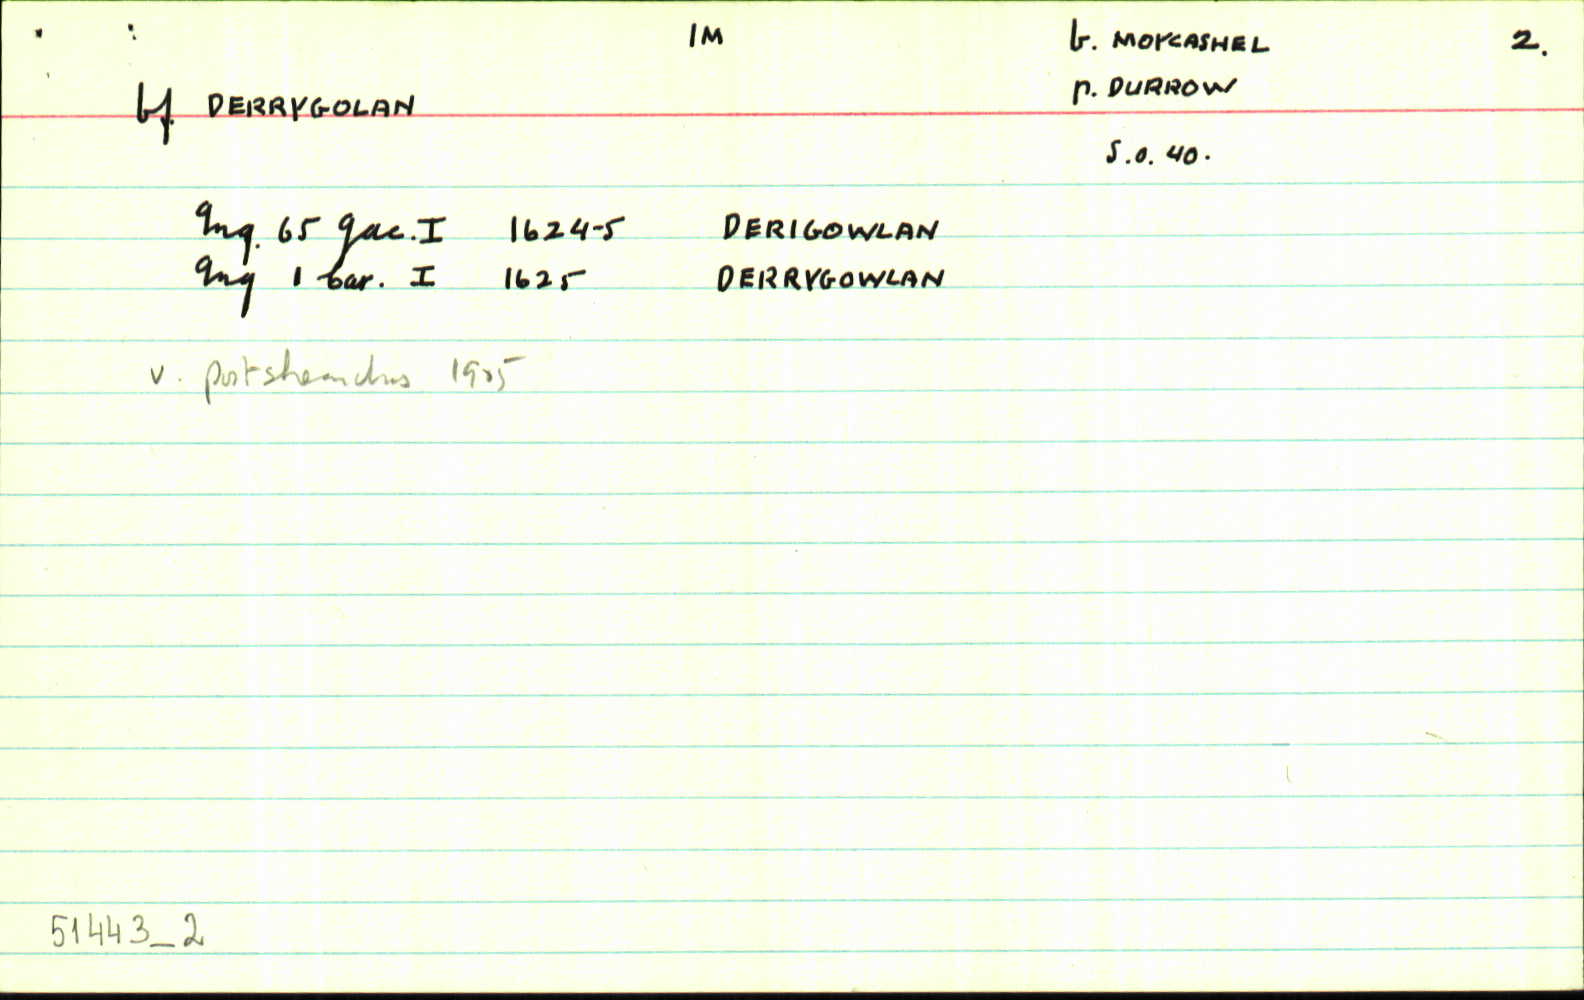 IM
b. MOYCASHEL
2.
p. DURROW
bf. DERRYGOLAN
S.O. 40.
Inq. 65 Jac. I 1624-5 DERIGOWLAN
Inq 1 Car. I 1625 DERRYGOWLAN
v. postsheanchas 1905
51443_2